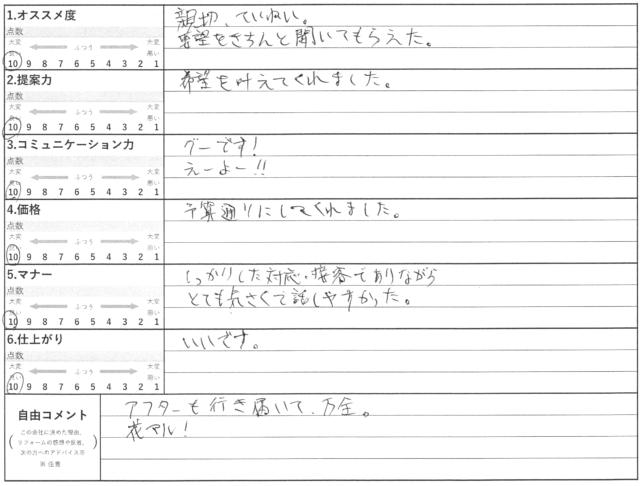 1.オススメ度
親切、ていねい。
点数
要望をきちんと聞いてもらえた。
大変 ふつう 大変
良い 悪い
10 9 8 7 6 5 4 3 2 1
2.提案力
希望を叶えてくれました。
点数
大変 ふつう 大変
良い 悪い
10 9 8 7 6 5 4 3 2 1
3.コミュニケーション力
グーです!
点数
えーよー!!
大変 ふつう 大変
良い 悪い
10 9 8 7 6 5 4 3 2 1
4.価格
予算通りにしてくれました。
点数
大変 ふつう 大変
良い 悪い
10 9 8 7 6 5 4 3 2 1
5.マナー
しっかりした対応・接客でありながら
点数
とても気さくで話しやすかった。
大変 ふつう 大変
良い 悪い
10 9 8 7 6 5 4 3 2 1
6.仕上がり
いいです。
点数
大変 ふつう 大変
良い 悪い
10 9 8 7 6 5 4 3 2 1
自由コメント
アフターも行き届いて、万全。
花マル!
この会社に決めた理由、
リフォームの感想や反省、
次の方へのアドバイス等
※任意